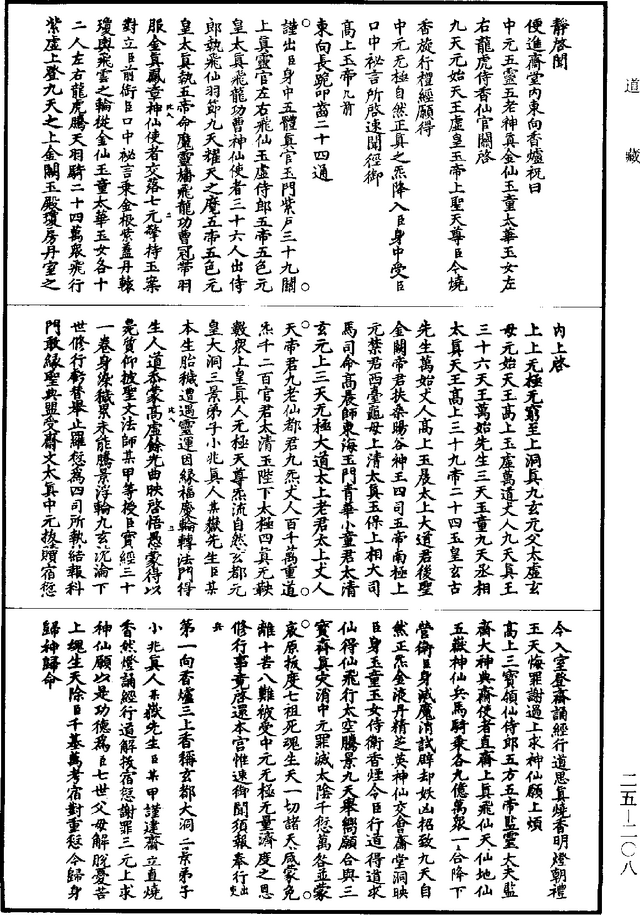 道藏
靜啓聞
便進齋堂內東向香爐祝曰
中元五靈五老神眞金仙玉童太華玉女左
右龍虎侍香仙官關啓
九天元始天王虛皇玉帝上聖天尊臣今燒
香旋行禮經願得
中元无極自然正真之炁降入臣身中受臣
口中祕言所啓速聞徑御
高上玉帝几前
東向長跪叩齒二十四通
謹出臣身中五體真官玉門紫戶三十九關
上真靈官左右飛仙玉虛侍郎五帝五色元
皇太真飛龍功曹神仙使者三十六人出侍
郎執飛仙羽節九天耀天之麾五帝五色元
皇太真執五帝命魔靈幡飛龍功曹冠帶羽
服金真鳳章神仙使者交落七元擎持玉案
對立臣前銜臣口中祕言乘金根紫蓋丹轅
瓊輿飛雲之輪從金仙玉童太華玉女各十
二人左右龍虎騰天羽騎二十四萬眾飛行
紫虛上登九天之上金闕玉殿瓊房丹室之
內上啓
上上元極无窮至上洞真九玄元父太虛玄
母元始天王高上玉虛萬道丈人九天真王
三十六天王萬始先生三天玉童九天丞相
太真天王高上三十九帝二十四玉皇玄古
先生萬始丈人高上玉晨太上大道君後聖
金闕帝君扶桑暘谷神王四司五帝南極上
元禁君西臺龜母上清太真玉保上相大司
馬司命高晨師東海玉門青華小童君太清
玄元上三天无極大道太上老君太上丈人
天帝君九老仙都君九炁丈人百千萬重道
炁千二百官君太清玉陛下太極四真元鞅
數眾上皇真人无極天尊炁流自然玄都元
皇大洞三景弟子小兆真人某嶽先生臣某
本生胎穢遭遇靈運因緣福慶輪轉法門得
生人道忝蒙高虛餘光曲映啓悟愚蒙得以
凫質仰披聖文法師某甲等授臣寶經三十
一卷身染穢累未能騰景浮輪九玄沉淪下
世修行虧替舉止羅愆為四司所執結報科
門敢緣聖典盟受齋文太真中元拔贖宿愆
今入室登齋誦經行道思真燒香明燈朝禮
玉天悔罪謝過上求神仙願上煩
高上三寶領仙侍郎五方五帝監靈大夫監
齋大神典齋使者直齋上真飛仙天仙地仙
五嶽神仙兵馬騎乘各九億萬眾一合降下
營衛臣身滅魔消試辟却妖凶招致九天自
然正炁金液丹精芝英神仙交會齋堂洞映
臣身玉童玉女侍衛香煙令臣行道得道求
仙得仙飛行太空騰景九天舉嚮願合與三
寶齊真灾消中元罪滅太陰千愆萬咎並蒙
哀原拔度七祖死魂生天一切諸天咸蒙免
離十苦八難被受中元无極无量濟度之恩
修行事竟啓還本宮惟速御聞須報奉行出使
兵
第一向香爐三上香稱玄都大洞三景弟子
小兆真人某嶽先生臣某甲謹建齋立直燒
香然燈誦經行道解拔宿愆謝罪三元上求
神仙願以是功德為臣七世父母解脫憂苦
上魂生天除臣千基萬考宿對重愆今歸身
歸神歸命
二五—二〇八